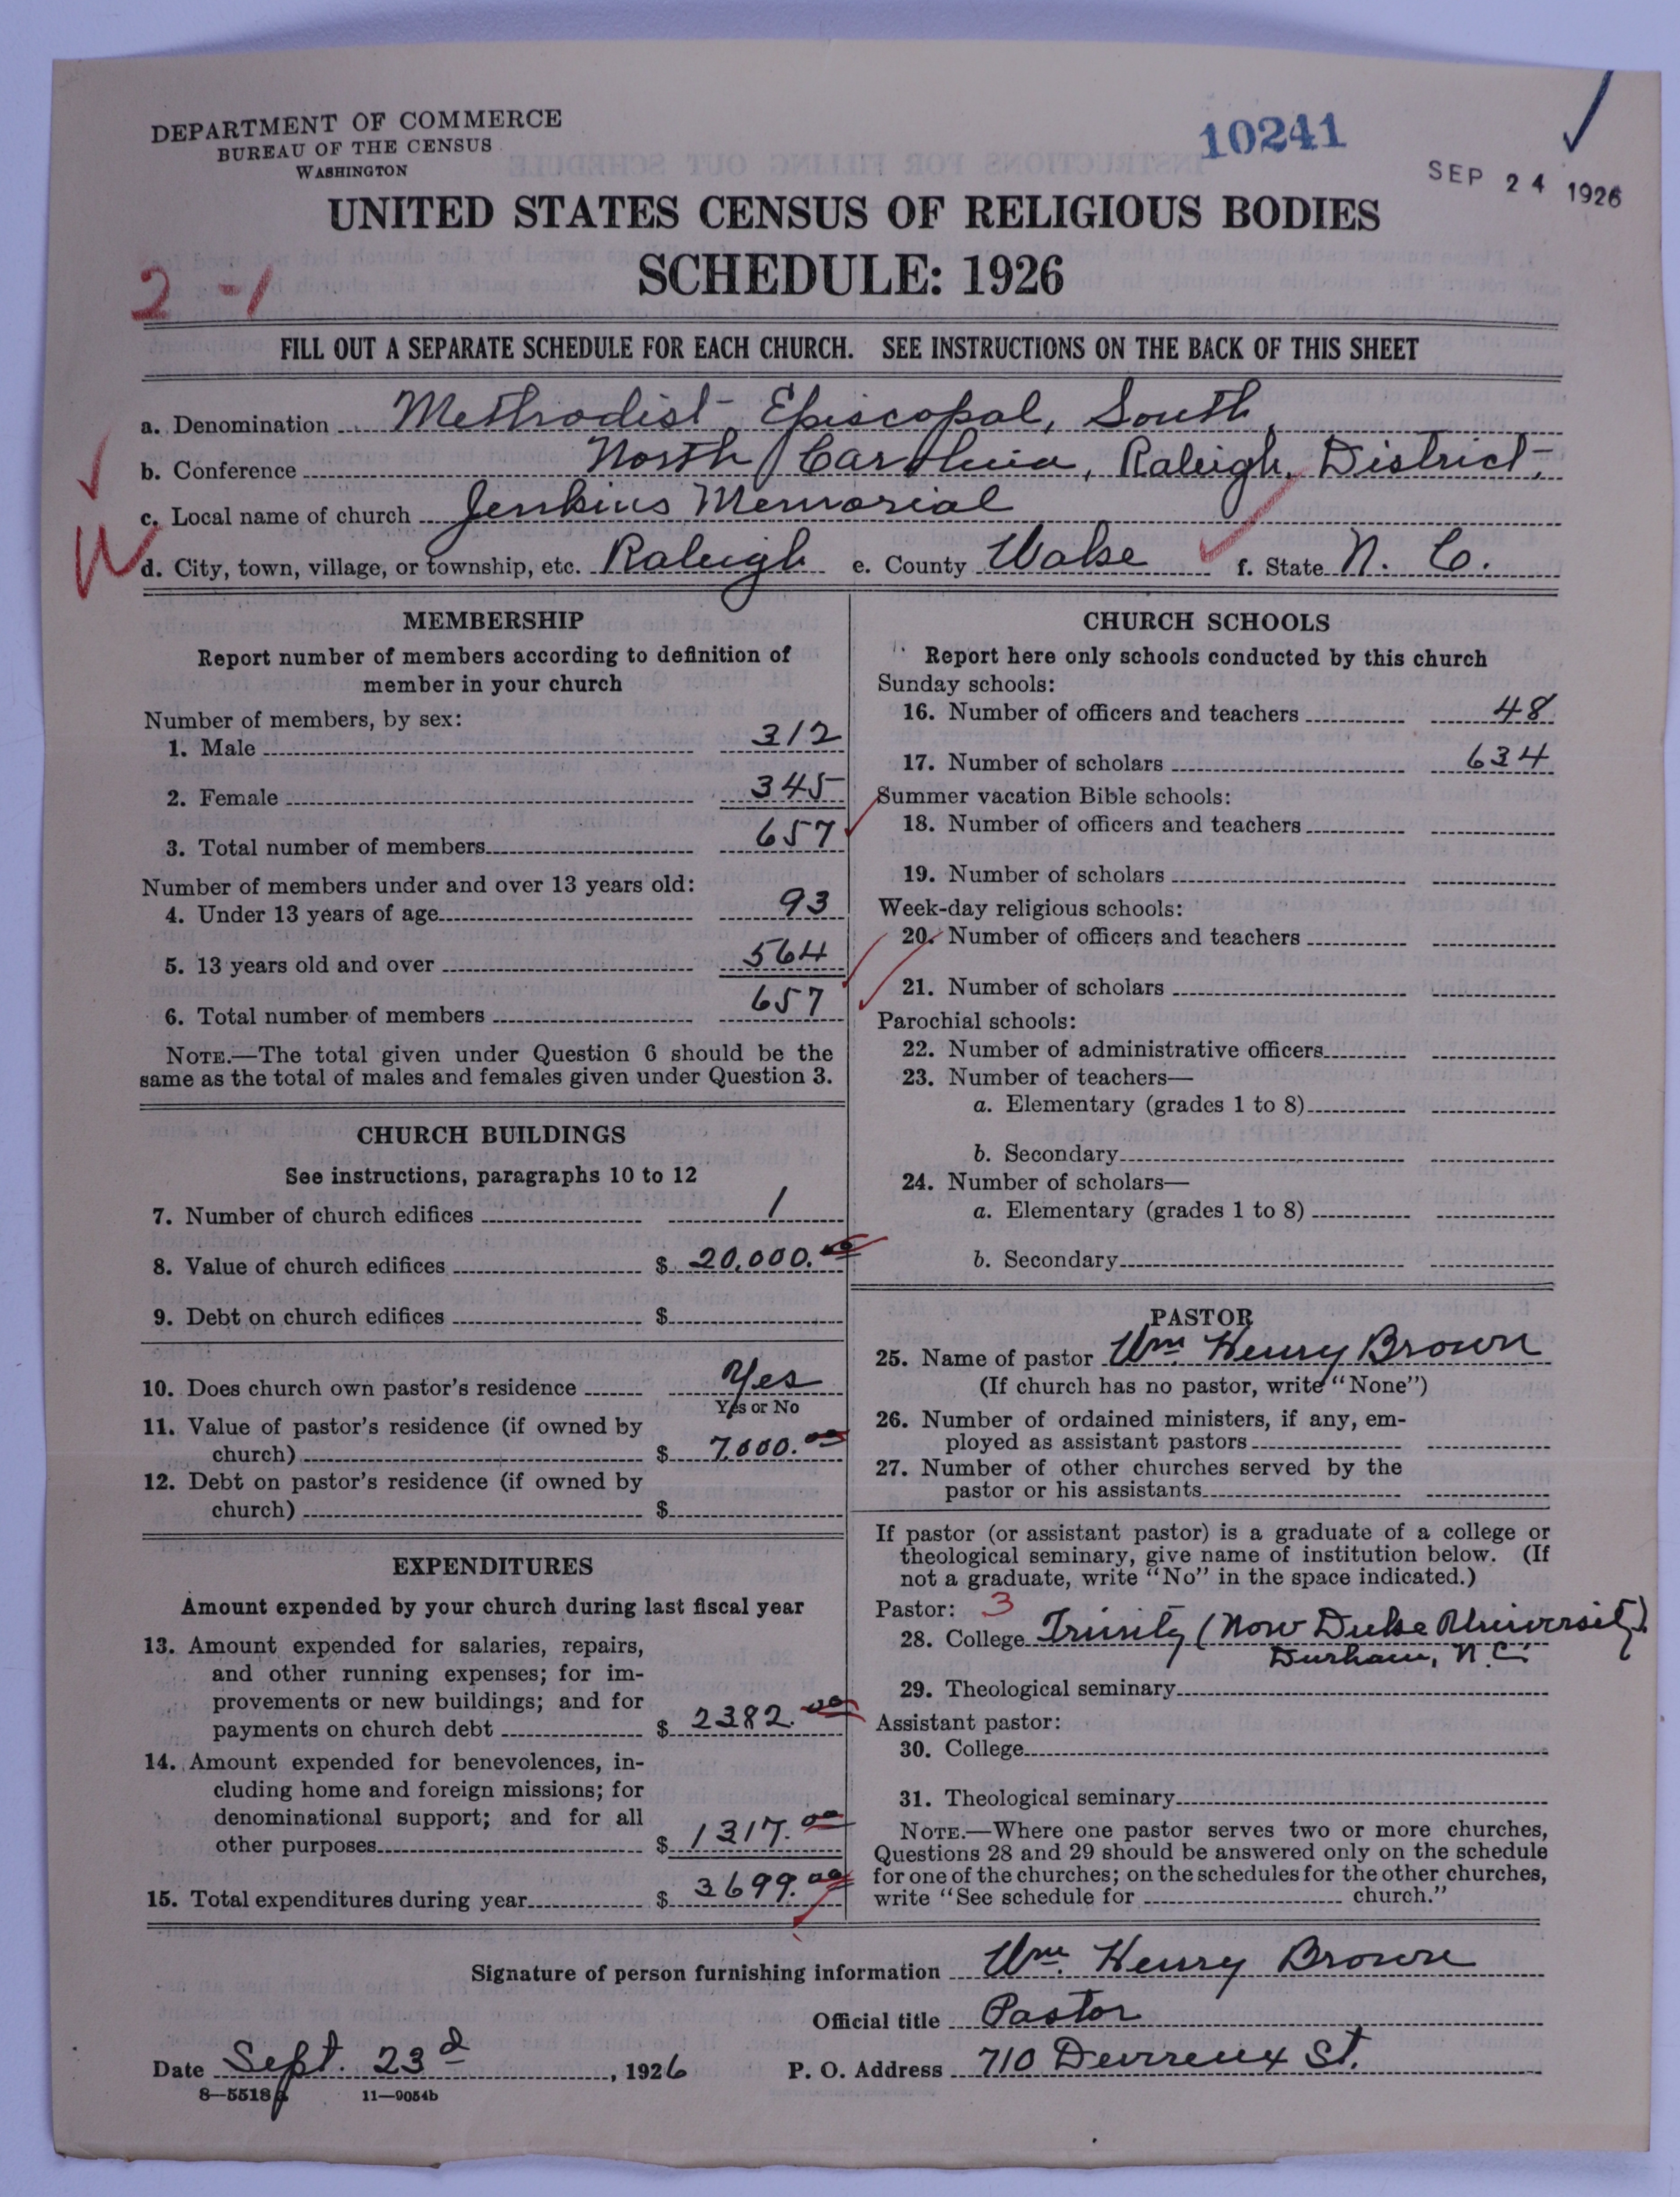 DEPARTMENT OF COMMERCE
BUREAU OF THE CENSUS
WASHINGTON
10241
SEP 24 1926
UNITED STATES CENSUS OF RELIGIOUS BODIES
SCHEDULE: 1926
2-1
FILL OUT A SEPARATE SCHEDULE FOR EACH CHURCH. SEE INSTRUCTIONS ON THE BACK OF THIS SHEET
a. Denomination Methodist Episcopal, South,
b. Conference North Carolina, Raleigh, District,
c. Local name of church Jenkins Memorial
d. City, town, village, or township, etc. Raleigh e. County Wake f. State N. C.
MEMBERSHIP
Report number of members according to definition of
member in your church
Number of members, by sex:
1. Male 312
2. Female 345
3. Total number of members 657
Number of members under and over 13 years old:
4. Under 13 years of age 93
5. 13 years old and over 564
6. Total number of members 657
NOTE.—The total given under Question 6 should be the
same as the total of males and females given under Question 3.
CHURCH BUILDINGS
See instructions, paragraphs 10 to 12
7. Number of church edifices 1
8. Value of church edifices $ 20,000.00
9. Debt on church edifices $
10. Does church own pastor's residence Yes
Yes or No
11. Value of pastor's residence (if owned by
church) $ 7,000.00
12. Debt on pastor's residence (if owned by
church) $
EXPENDITURES
Amount expended by your church during last fiscal year
13. Amount expended for salaries, repairs,
and other running expenses; for im-
provements or new buildings; and for
payments on church debt $ 2382.00
14. Amount expended for benevolences, in-
cluding home and foreign missions; for
denominational support; and for all
other purposes $ 1317.00
15. Total expenditures during year $ 3699.00
CHURCH SCHOOLS
Report here only schools conducted by this church
Sunday schools:
16. Number of officers and teachers 48
17. Number of scholars 634
Summer vacation Bible schools:
18. Number of officers and teachers
19. Number of scholars
Week-day religious schools:
20. Number of officers and teachers
21. Number of scholars
Parochial schools:
22. Number of administrative officers
23. Number of teachers—
a. Elementary (grades 1 to 8)
b. Secondary
24. Number of scholars—
a. Elementary (grades 1 to 8)
b. Secondary
PASTOR
25. Name of pastor Wm. Henry Brown
(If church has no pastor, write "None")
26. Number of ordained ministers, if any, em-
ployed as assistant pastors
27. Number of other churches served by the
pastor or his assistants
If pastor (or assistant pastor) is a graduate of a college or
theological seminary, give name of institution below. (If
not a graduate, write "No" in the space indicated.)
Pastor: 3
28. College Trinity (Now Duke University)
Durham, N.C.
29. Theological seminary
Assistant pastor:
30. College
31. Theological seminary
NOTE.—Where one pastor serves two or more churches,
Questions 28 and 29 should be answered only on the schedule
for one of the churches; on the schedules for the other churches,
write "See schedule for church."
Signature of person furnishing information Wm. Henry Brown
Official title Pastor
Date Sept. 23d, 1926 P. O. Address 710 Devreux St.
8—5518a 11—9054b